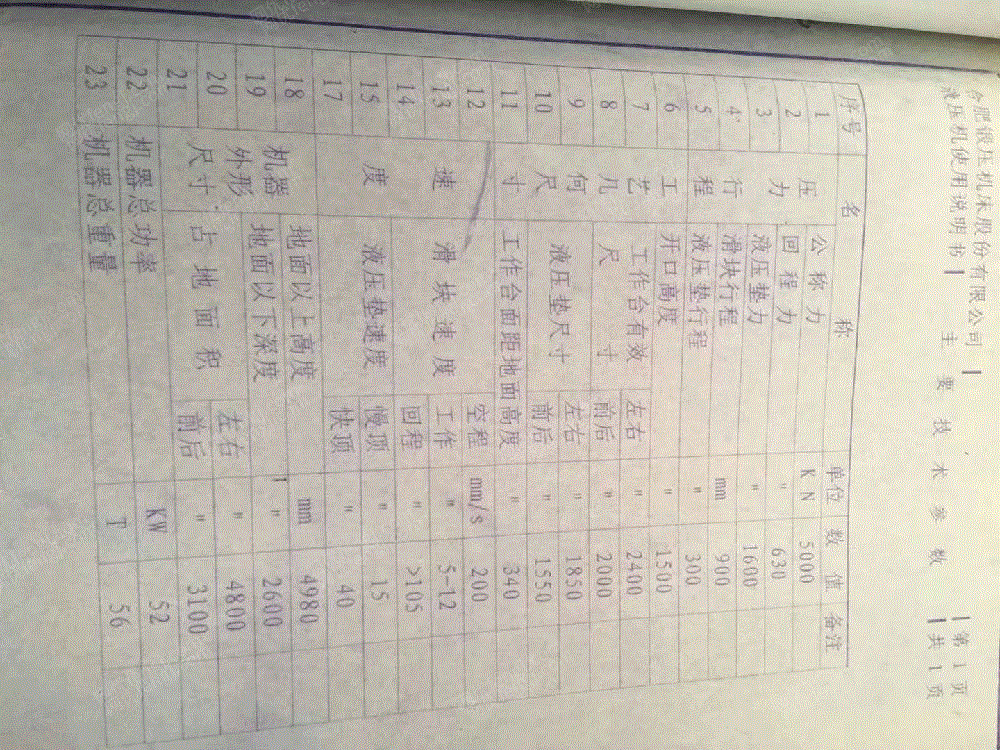 合肥锻压机床股份有限公司
液压机使用说明书
主要技术参数
第1页
共1页
序号 名称 单位 数值 备注
1 压力 公称力 KN 5000
2 回程力 " 630
3 液压垫力 " 1600
4 行程 滑块行程 mm 900
5 液压垫行程 " 300
6 工艺几何尺寸 开口高度 " 1500
7 工作台有效尺寸 左右 " 2400
8 前后 " 2000
9 液压垫尺寸 左右 " 1850
10 前后 " 1550
11 工作台面距地面高度 " 340
12 速度 滑块速度 空程 mm/s 200
13 工作 " 5-12
14 回程 " >105
15 液压垫速度 慢顶 " 15
17 快顶 " 40
18 机器外形尺寸 地面以上高度 mm 4980
19 地面以下深度 " 2600
20 占地面积 左右 " 4800
21 前后 " 3100
22 机器总功率 KW 52
23 机器总重量 T 56